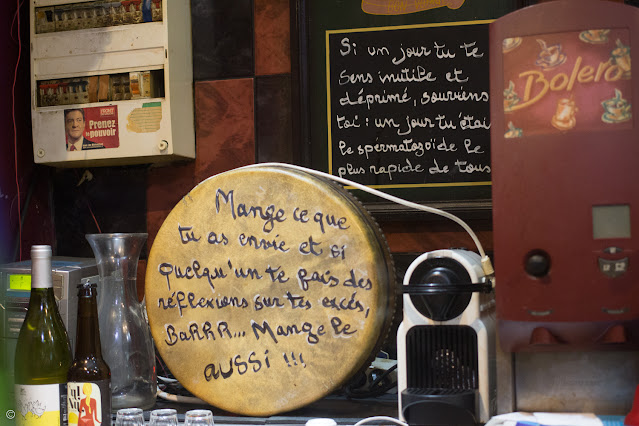 Si un jour tu te
sens inutile et
déprimé, souviens
toi : un jour tu étais
le spermatosoïde le
plus rapide de tous
Bolero
FRONT
Prenez
le pouvoir
Mange ce que
tu as envie et si
quelqu'un te fais des
réflexions sur tes excés,
BaRRR... Mange le
aussi !!!
©